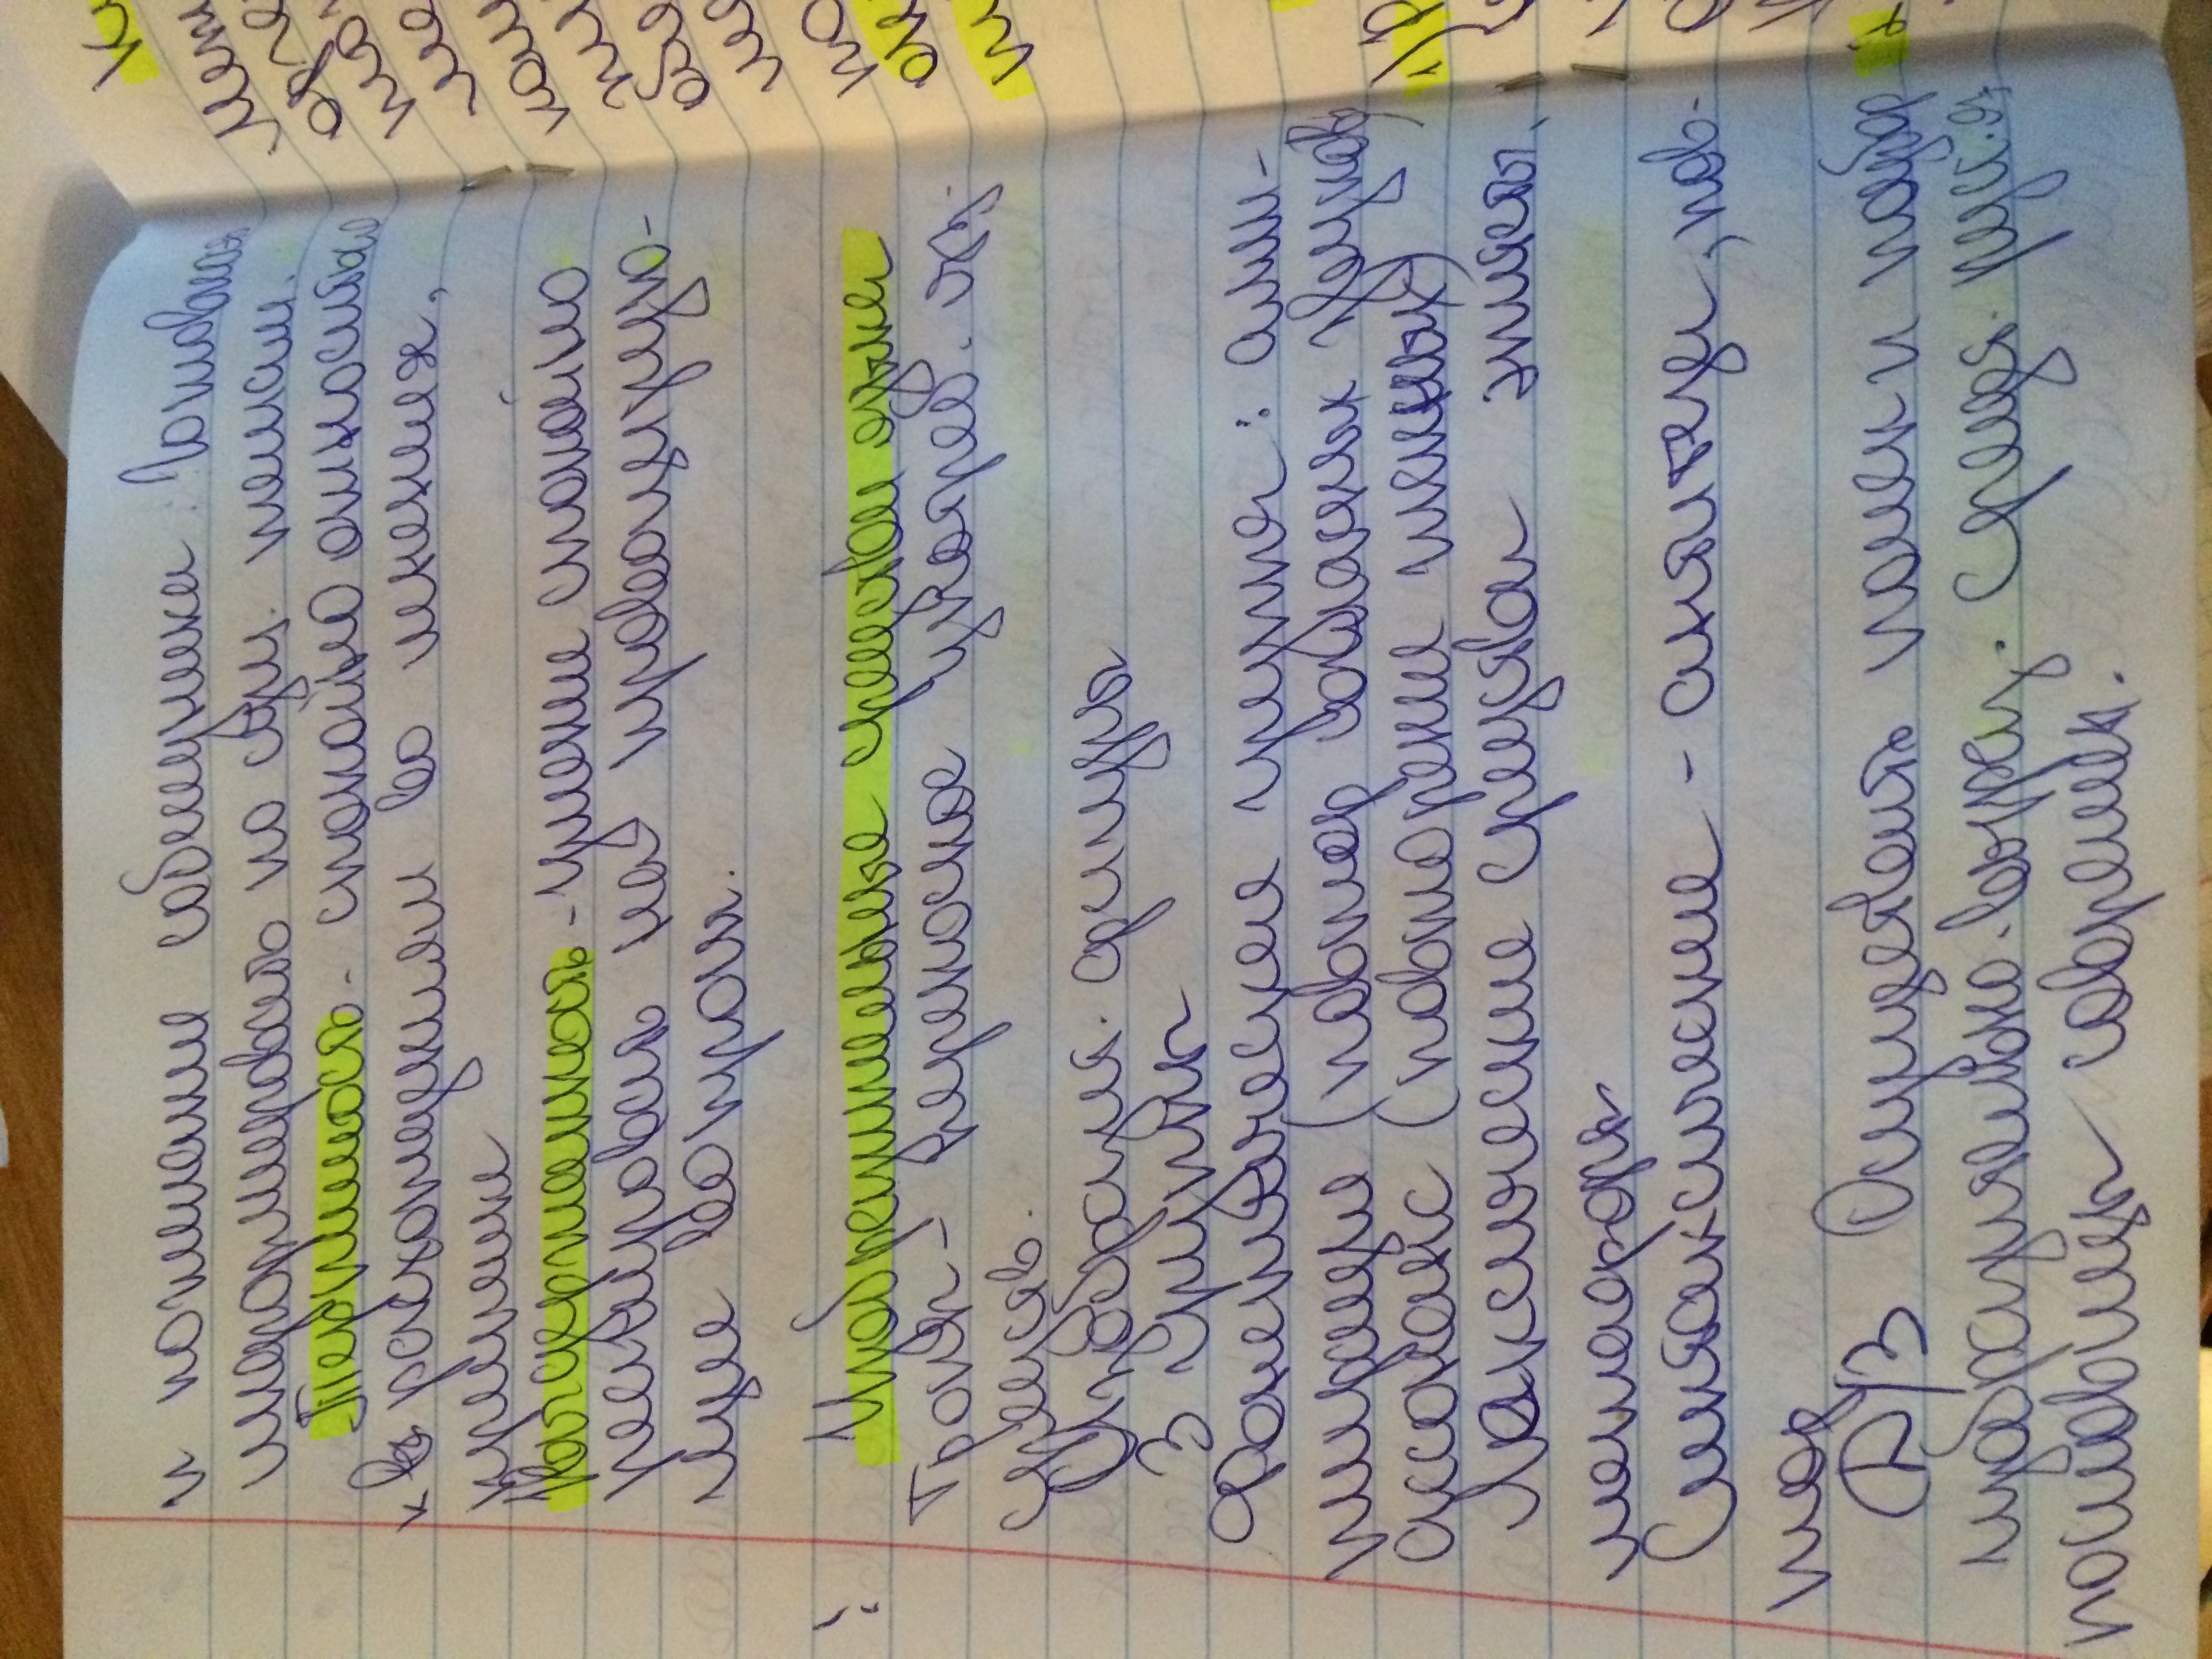 и пожелание собеседника. Готовность
информировать по сущ. темам.
Терпимость - спокойно относиться
к расхождениям во мнениях,
критике
Выдержанность - умение спокойно
реагировать на провоцирую-
щие вопросы.
! Изобразительные средства языка
Тропы - переносное употреб. яз.
средств.
Изобразит. фигуры
3 группы
Фонетическая группа: алли-
терация (повтор согласных звуков)
ассонанс (повторение гласных)
Лексические средства эпитеты,
метафоры
Синтаксические - антитеза, пов-
тор
Д/З Осуществить поиск и подбор
изобразительно-выраз. средст. русс. яз
пословицы современ.